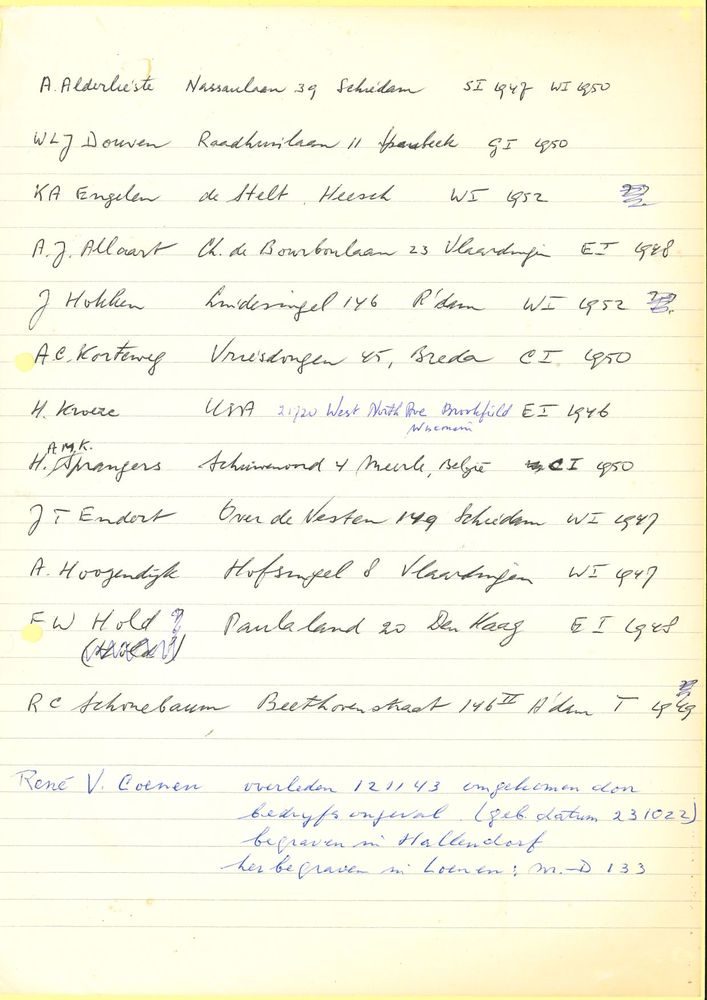 A. Alderlieste Nassaulaan 39 Schiedam SI 1947 WI 1950
WLJ Douven Raadhuislaan 11 GI 1950
KA Engelen de Stelt Heesch WI 1952
A.J. Allaart Ch. de Bourbonlaan 23 Vlaardingen EI 1948
J Hokken 146 R'dam WI 1952
A.C. Korteweg Vriesdongen 45, Breda CI 1950
H. Kroeze USA 21720 West North Ave Brookfield EI 1946
A.M.K.
H. Sprangers 4 Meerle, België CI 1950
J T Endort Over de Vesten 149 Schiedam WI 1947
A. Hoogendijk Hofsingel 8 Vlaardingen WI 1947
F W Hold ? Paulaland 20 Den Haag EI 1948
R C Schönebaum Beethovenstraat 146 II A'dam T 1949
René V. Coenen overleden 121143 omgekomen door
bedryfsongeval. (geb datum 231022)
begraven in Hallendorf
herbegraven in Loenen: nr.-D 133